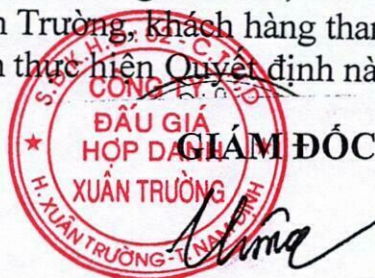 n Trường, khách hàng tham
n thực hiện Quyết định nà
CÔNG TY
ĐẤU GIÁ
HỢP DANH
XUÂN TRƯỜNG
H. XUÂN TRƯỜNG - T. NAM ĐỊNH
GIÁM ĐỐC